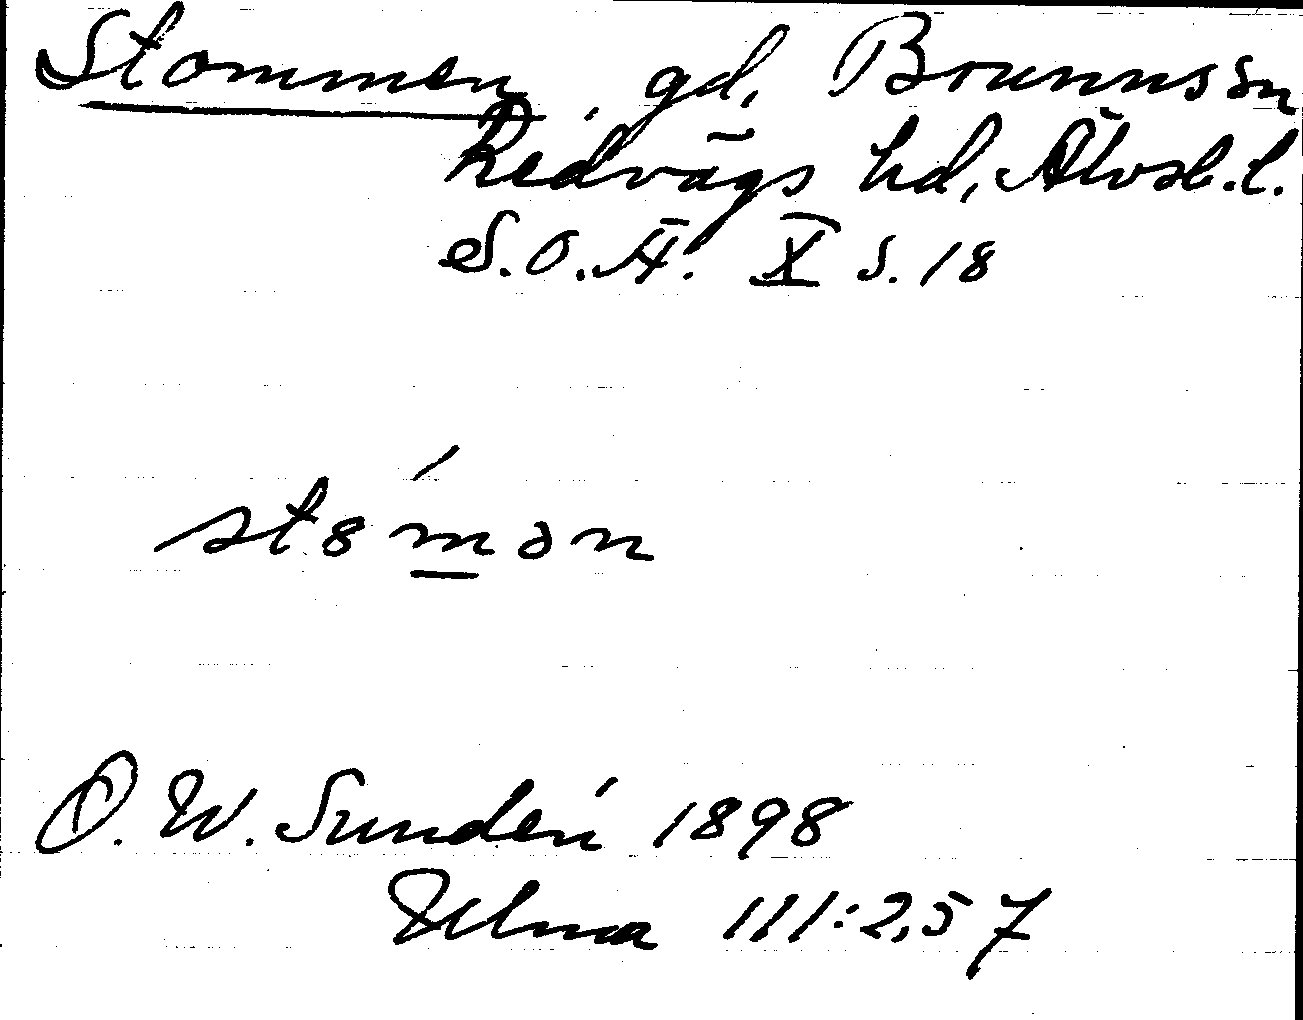 Stommen, gd, Brunns sn
Redvägs hd, Älvsb. l.
S.O.Ä. X s. 18
st8man
D. W. Sundén 1898
Ulma 111:2,57